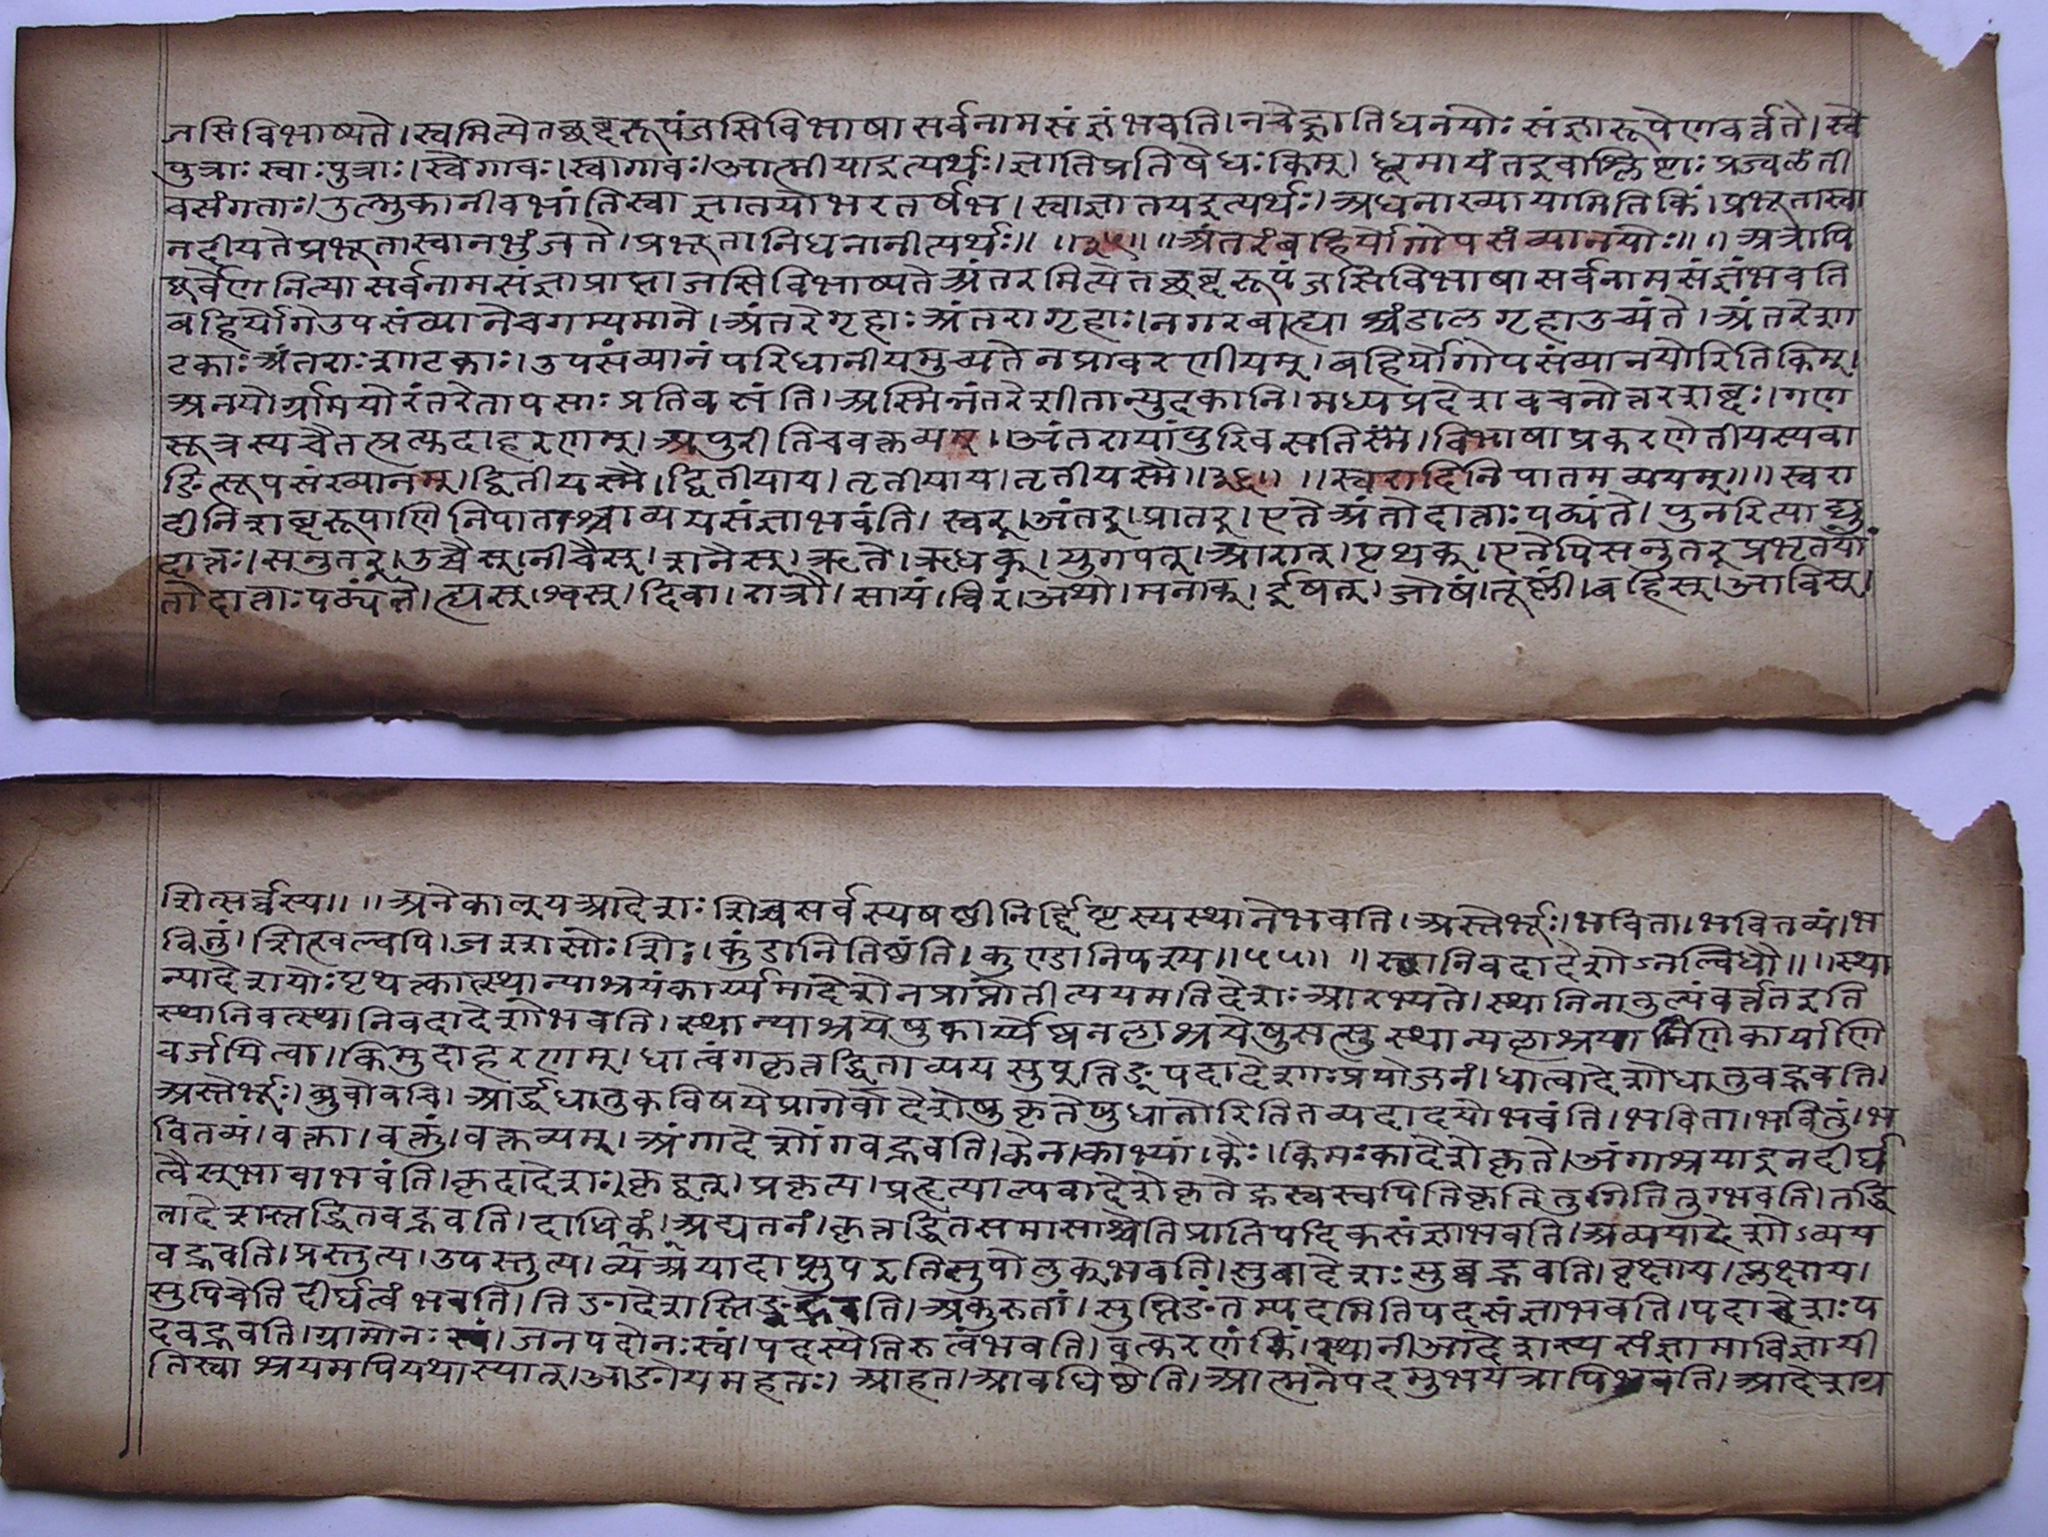 जसिविभाष्यते। स्वमित्येतच्छब्दरूपं जसिविभाषा सर्वनामसंज्ञं भवति। नचेज्ज्ञातिधनयोः संज्ञारूपेणवर्त्तते। स्वे
पुत्राः स्वाः पुत्राः। स्वेगावः। स्वागावः। आत्मीयाइत्यर्थः। ज्ञातिप्रतिषेधः किम्। धूमायंतइवाश्लिष्टाः प्रज्वलंती
वसंगताः। उल्मुकानीवभांतिस्वा ज्ञातयोभरतर्षभ। स्वाज्ञातयइत्यर्थः। अधनाख्यायामितिकिं। प्रभूतास्वा
नदीयतेप्रभूतास्वानभुंजते। प्रभूतानिधनानीत्यर्थः॥ ॥३५॥ ॥अंतरंबहिर्योगोपसंव्यानयोः॥ ॥ अत्रापि
पूर्वेणनित्यासर्वनामसंज्ञाप्राप्ताजसिविभाष्यते अंतरमित्येतच्छब्दरूपं जसिविभाषासर्वनामसंज्ञंभवति
बहिर्योगेउपसंव्यानेचगम्यमाने। अंतरेगृहाः अंतरागृहाः। नगरबाह्याश्चंडालगृहाउच्यंते। अंतरेशा
टकाः अंतराः शाटकाः। उपसंव्यानं परिधानीयमुच्यतेनप्रावरणीयम्। बहिर्योगोपसंव्यानयोरितिकिम्।
अनयोर्ग्रामयोरंतरेतापसाः प्रतिवसंति। अस्मिन्नंतरेशीतान्युदकानि। मध्यप्रदेशवचनोन्तरशब्दः। गण
सूत्रस्यचैतत्प्रत्युदाहरणम्। अपुरीतिचवक्तव्यम्। अंतरायांपुरिवसतिस्म। विभाषाप्रकरणेतीयस्यवा
ङित्सूपसंख्यानम्। द्वितीयस्मै। द्वितीयाय। तृतीयाय। तृतीयस्मै॥३६॥ ॥स्वरादिनिपातमव्ययम्॥ ॥ स्वरा
दीनिशब्दरूपाणिनिपाताश्चाव्ययसंज्ञाभवंति। स्वर्। अंतर्। प्रातर्। एतेअंतोदात्ताः पठ्यंते। पुनरित्याद्यु
दात्तः। सनुतर्। उच्चैस्। नीचैस्। शनैस्। ऋते। ऋधक्। युगपत्। आरात्। पृथक्। एतेपिसनुतर्प्रभृतयों
तोदात्ताः पठ्यंते। ह्यस्। श्वस्। दिवा। रात्रौ। सायं। चिरं। अथो। मनाक्। ईषत्। जोषं। तूष्णीं। बहिस्। आविस्।
शित्सर्व्वस्य॥ ॥ अनेकाल्यआदेशः शिच्चसर्वस्यषष्ठीनिर्द्दिष्टस्यस्थानेभवति। अस्तेर्भूः। भविता। भवितव्यं। भ
वितुं। शित्खल्वपि। जश्शसोः शिः। कुंडानितिष्ठंति। कुण्डानिपश्य॥५५॥ ॥ स्थानिवदादेशोऽनल्विधौ॥ ॥स्था
न्यादेशयोः पृथत्कात्स्थान्याश्रयंकार्य्यमादेशेनप्राप्नोतीत्ययमतिदेशः आरभ्यते। स्थानिनातुल्यंवर्त्ततइति
स्थानिवत्स्थानिवदादेशोभवति। स्थान्याश्रयेषुकार्य्येष्वनलाश्रयेषुसत्सु स्थान्यलाश्रयाणिकार्याणि
वर्जयित्वा। किमुदाहरणम्। धात्वंगकृत्तद्धिताव्ययसुप्तिङ्पदादेशाः प्रयोजनं। धात्वादेशोधातुवद्भवति।
अस्तेर्भूः। ब्रुवोवचि। आर्द्धधातुकविषयेप्रागेवादेशेषुकृतेषुधातोरितितव्यदादयोभवंति। भविता। भवितुं। भ
वितव्यं। वक्ता। वक्तुं। वक्तव्यम्। अंगादेशोंगवद्भवति। केन। काभ्यां। कैः। किमः कादेशेकृते। अंगाश्रयाइनदीर्घ
त्वैस्भावाभवंति। कृदादेशः। कृद्वत्। प्रकृत्य। प्रहृत्याल्यबादेशेकृतेह्रस्वस्यपितिकृतितुगितितुग्भवति। तद्धि
तादेशस्तद्धितवद्भवति। दाधिकं। अद्यतनं। कृत्तद्धितसमासाश्चेतिप्रातिपदिकसंज्ञाभवति। अव्ययादेशोऽव्यय
वद्भवति। प्रस्तुत्य। उपस्तुत्य। व्यअयादाप्सुपइतिसुपोलुक्भवति। सुबादेशः सुब्वद्भवति। वृक्षाय। प्लक्षाय।
सुपिचेतिदीर्घत्वंभवति। तिङादेशस्तिङ्वद्भवति। अकुरुतां। सुप्तिङंतम्पदमितिपदसंज्ञाभवति। पदादेशः प
दवद्भवति। ग्रामोनः स्वं। जनपदोनः स्वं। पदस्येतिरुत्वंभवति। वत्करणंकिं। स्थानीआदेशस्यसंज्ञामाविज्ञायी
तिस्वाश्रयमपियथास्यात्। आङोयमहनः। आहत। आवधिष्ठेति। आत्मनेपदमुभयत्रापिभवति। आदेशग्र